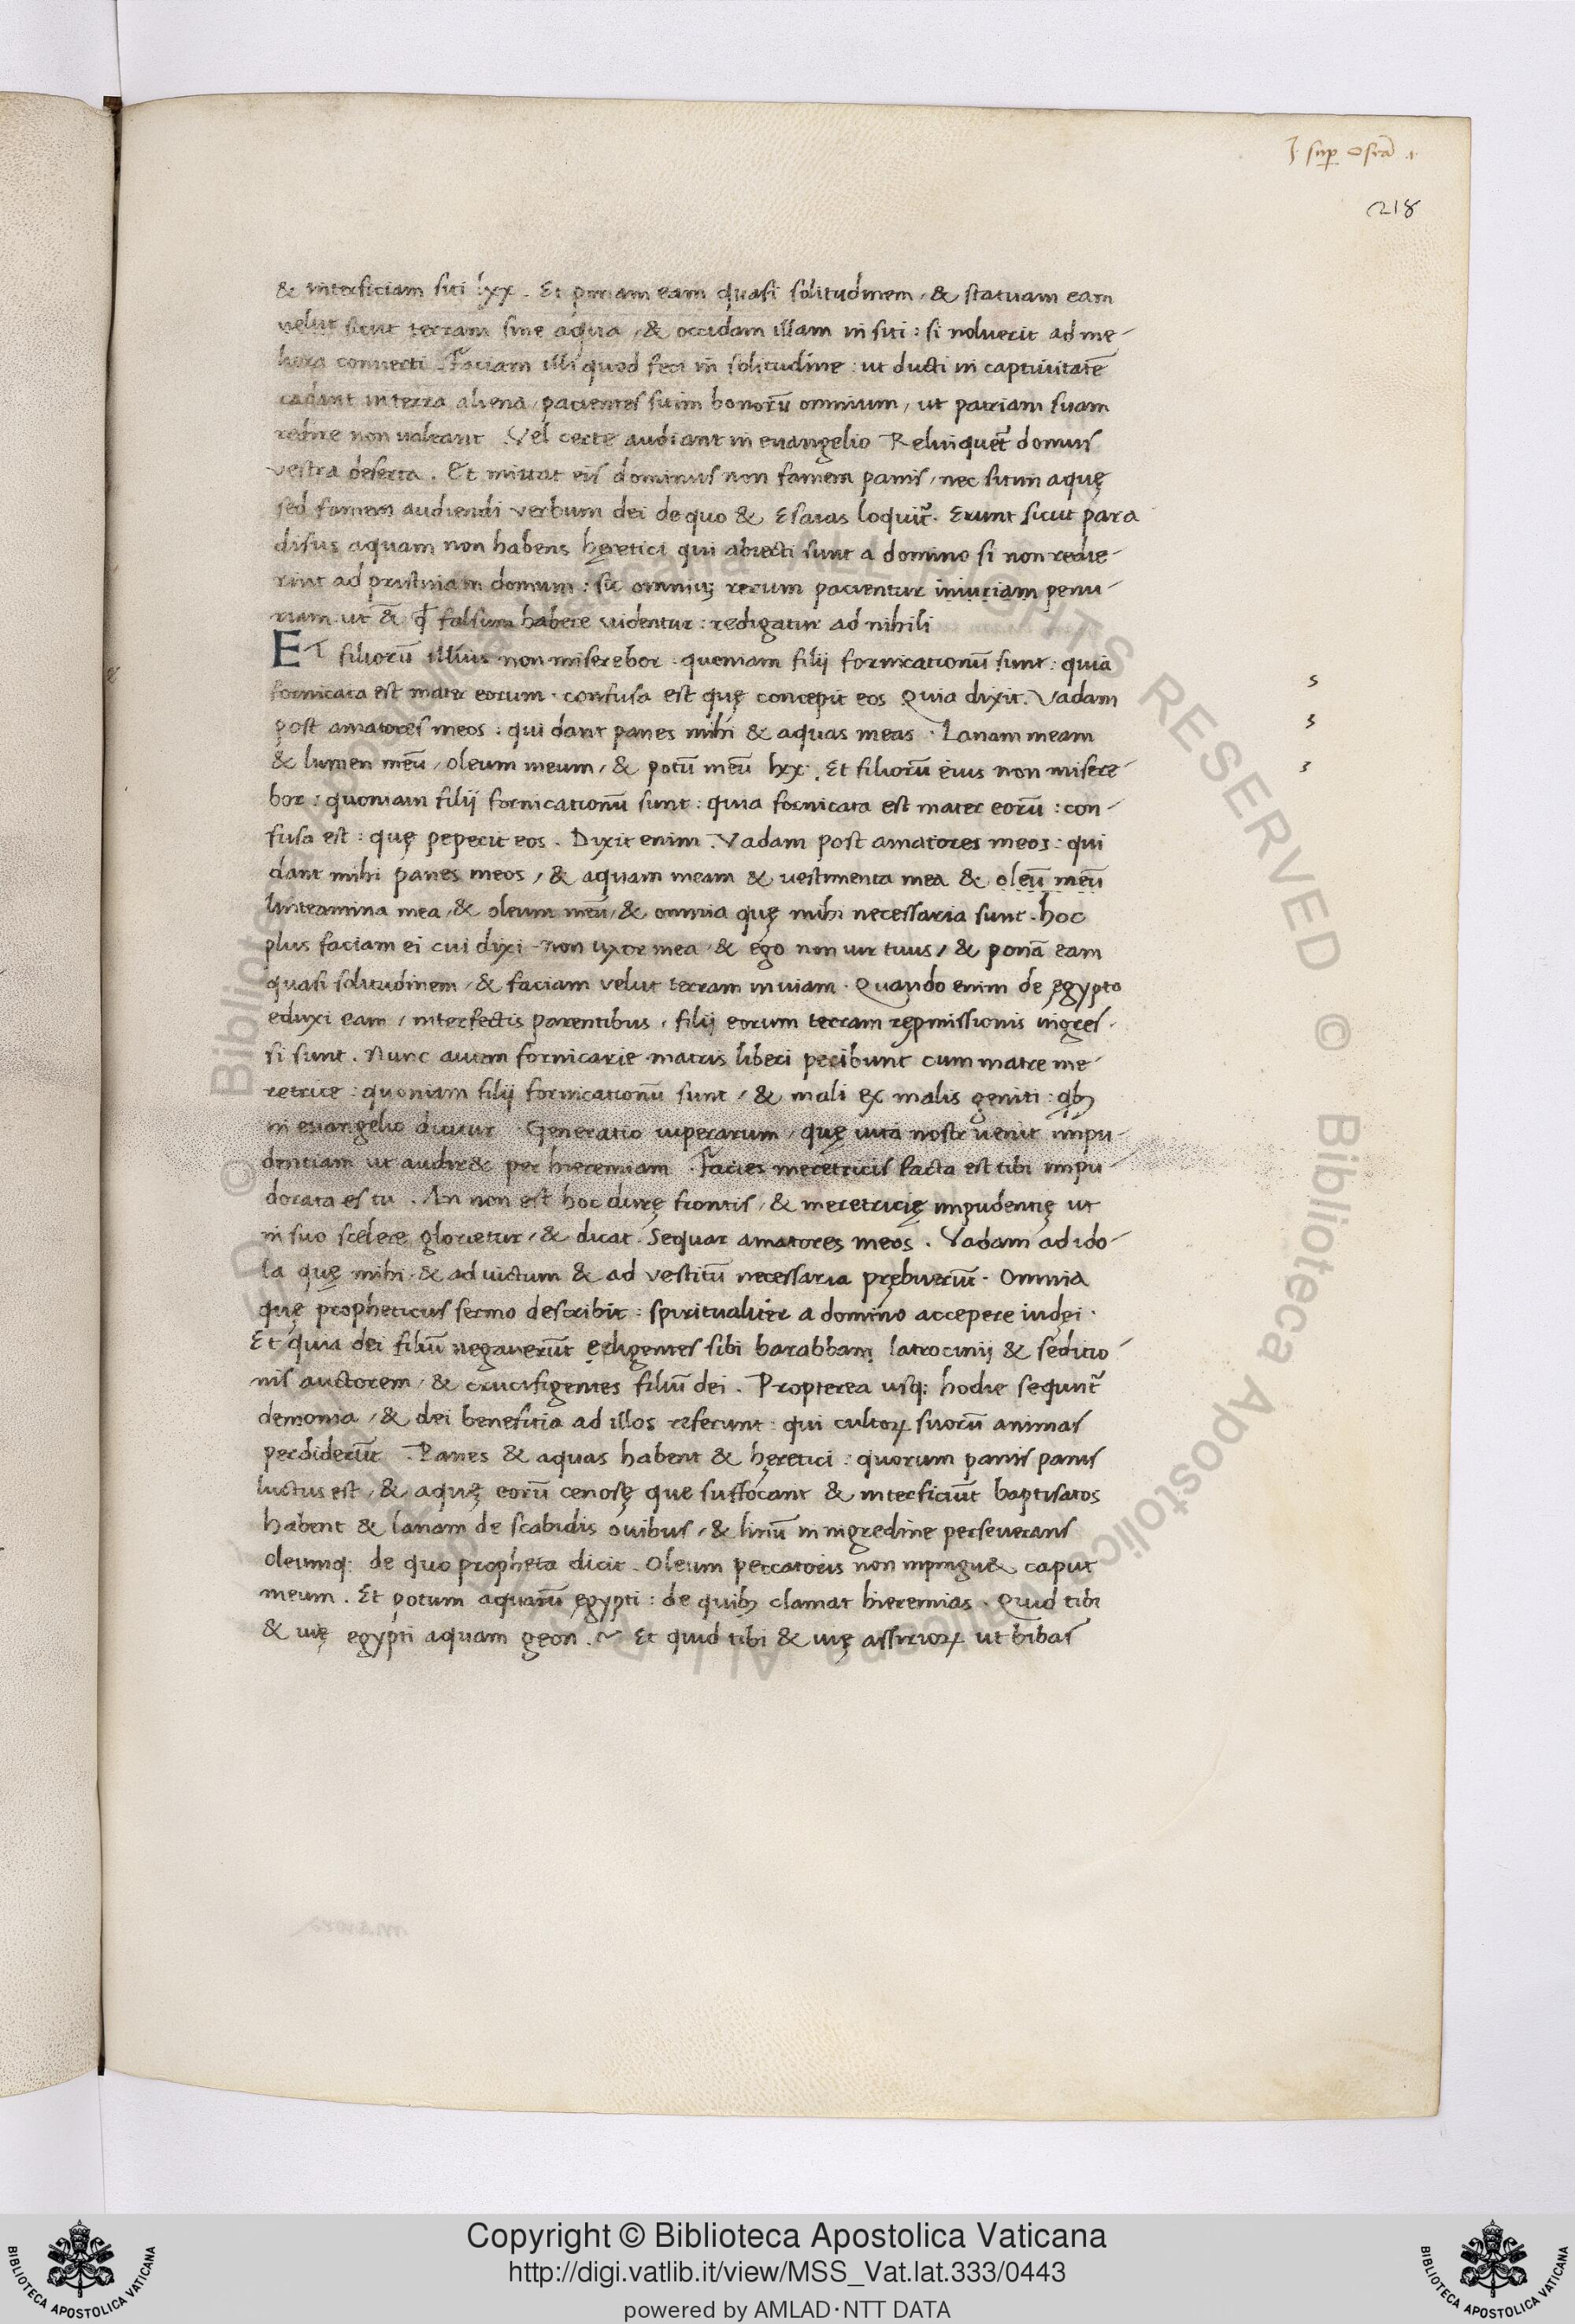 I. sup oseā .1.
218
& interficiam siti lxx. Et ponam eam quasi solitudinem, & statuam eam
uelut sicut terram sine aqua, & occidam illam in siti: si noluerit ad me-
liora conuerti. Faciam illi quod feci in solitudine: ut ducti in captiuitatē
cadant in terra aliena, pacientes sitim bonorū omnium, ut patriam suam
redire non ualeant. Vel certe audiant in euangelio Relinquet̃ domus
vestra deserta. Et mittat eis dominus non famem panis, nec sitim aquę
sed famem audiendi verbum dei de quo & Esaias loquit̃. Erunt sicut para
disus aquam non habens hęretici qui abiecti sunt a domino si non redie-
rint ad pristinam domum: sic omniuꝫ rerum pacientur iniuriam penu-
riam ut & qđ falsum habere uidentur: redigatur ad nihili
ET filiorū illius non miserebor. quoniam filij fornicationū sunt: quia
fornicata est mater eorum. confusa est quę concepit eos Quia dixit. Vadam
post amatores meos: qui dant panes mihi & aquas meas. Lanam meam
& lumen meū, oleum meum, & potū meū lxx. Et filiorū eius non misere-
bor: quoniam filij fornicationū sunt: quia fornicata est mater eorū: con-
fusa est: quę peperit eos. Dixit enim. Vadam post amatores meos: qui
dant mihi panes meos, & aquam meam & uestimenta mea & oleū meū
linteamina mea, & oleum meū, & omnia quę mihi necessaria sunt. hoc
plus faciam ei cui dixi. non uxor mea, & ego non uir tuus, & ponā eam
quasi solitudinem, & faciam velut terram inuiam. Quando enim de ęgypto
eduxi eam, interfectis parentibus, filij eorum terram repmissionis ingres-
si sunt. Nunc autem fornicarie matris liberi peribunt cum matre me-
retrice: quoniam filij fornicationū sunt, & mali ex malis geniti: qbꝫ
in euangelio dicitur. Generatio uiperarum, quę
dentiam ut audir& per hieremiam. Facies meretricis facta est tibi impu-
dorata es tu. An non est hoc durę frontis, & meretricię impudentię ut
in suo scelere glorietur, & dicat. Sequar amatores meos. Vadam ad ido-
la quę mihi & ad uictum & ad vestitū necessaria prębuerūt. Omnia
quę propheticus sermo describit: spiritualiter a domino accepere iudei.
Et quia dei filiū negauerūt eligentes sibi barabbam latrocinij & seditio-
nis auctorem, & crucifigentes filiū dei. Propterea usq: hodie sequnt̃
demonia, & dei benefitia ad illos referunt: qui cultoꝝ suorū animas
perdiderūt. Panes & aquas habent & hęretici: quorum panis panis
luctus est, & aquę eorū cenosę que suffocant & interficiūt baptisatos
habent & lanam de scabidis ouibus, & linū in nigredine perseuerans
oleumq: de quo propheta dicit. Oleum peccatoris non inpingu& caput
meum. Et potum aquarū ęgypti: de quibꝫ clamat hieremias. Quid tibi
& uię egypti aquam geon. Et quid tibi & uię assirioꝝ ut bibas
Copyright © Biblioteca Apostolica Vaticana
http://digi.vatlib.it/view/MSS_Vat.lat.333/0443
powered by AMLAD·NTT DATA